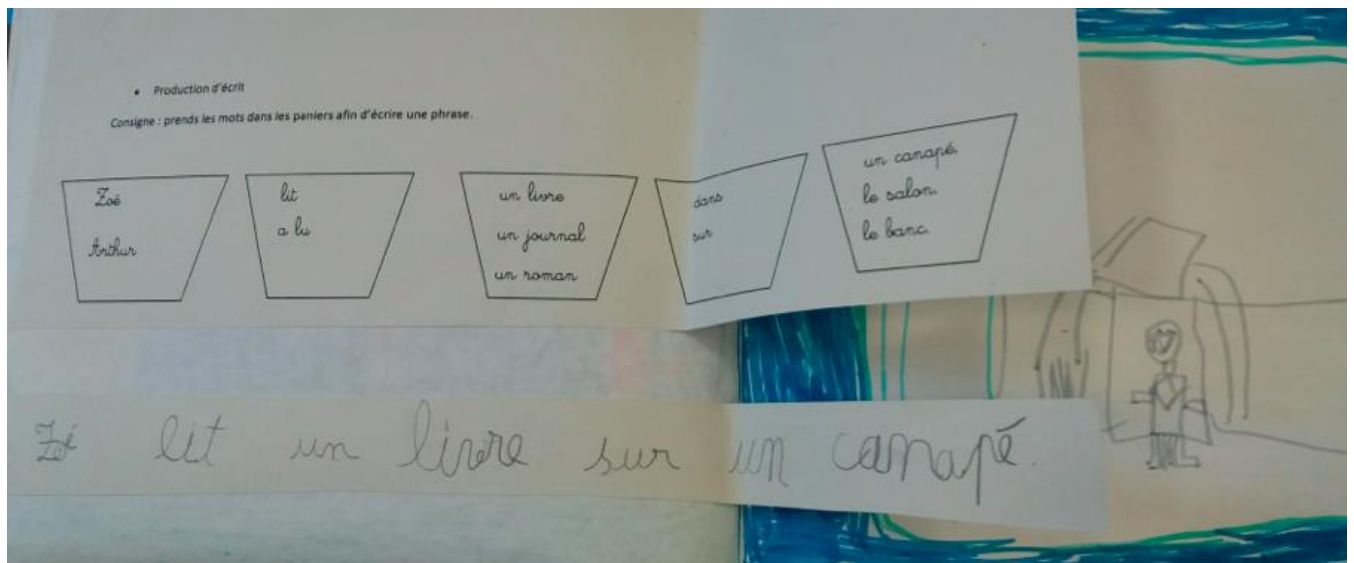 • Production d'écrit
Consigne : prends les mots dans les paniers afin d'écrire une phrase.
Zoé
Arthur
lit
a lu
un livre
un journal
un roman
dans
sur
un canapé.
le salon.
le banc.
Zoé lit un livre sur un canapé.